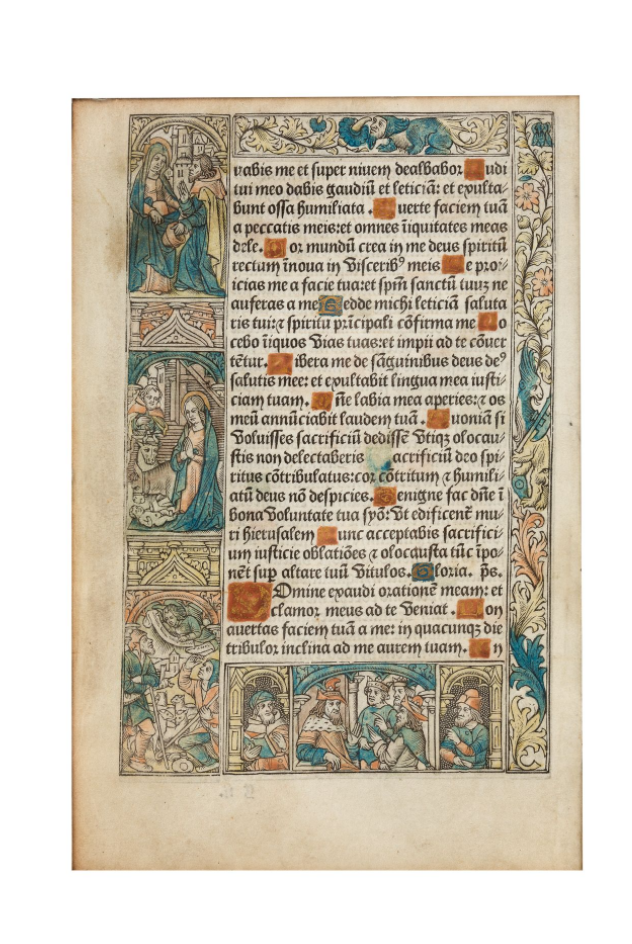 vabis me et super nivem dealbabor. Audi
tui meo dabis gaudiū et leticiā: et exulta-
bunt ossa humiliata. Averte faciem tuā
a peccatis meis: et omnes īiquitates meas
dele. Cor mundū crea in me deus: spiritū
rectum īnoua in Visceribꝰ meis. Ne proi-
icias me a facie tua: et spm̄ sanctū tuuꝫ ne
auferas a me. Redde michi leticiā saluta
ris tui: ⁊ spiritu prīcipali cōfirma me. Do
cebo īiquos Vias tuas: et impii ad te cōuer
tētur. Libera me de sāguinibus deus deꝰ
salutis mee: et exultabit lingua mea iusti-
ciam tuam. Dn̄e labia mea aperies: ⁊ os
meū annūciabit laudem tuā. Quoniā si
Voluisses sacrificiū dedissē Vtiqꝫ olocau-
stis non delectaberis. Sacrificiū deo spi-
ritus cōtribulatus: cor cōtritum ⁊ humili-
atū deus nō despicies. Benigne fac dn̄e ī
bona Voluntate tua syō: Vt edificent̄ mu-
ri hierusalem. Tunc acceptabis sacrifici-
um iusticie oblatiōes ⁊ olocausta tūc īpo-
nēt sup̱ altare tuū Vitulos. Gloria. ps.
Domine exaudi orationē meam: et
clamor meus ad te Veniat. Non
auertas faciem tuā a me: in quacunqꝫ die
tribulor inclina ad me aurem tuam. In